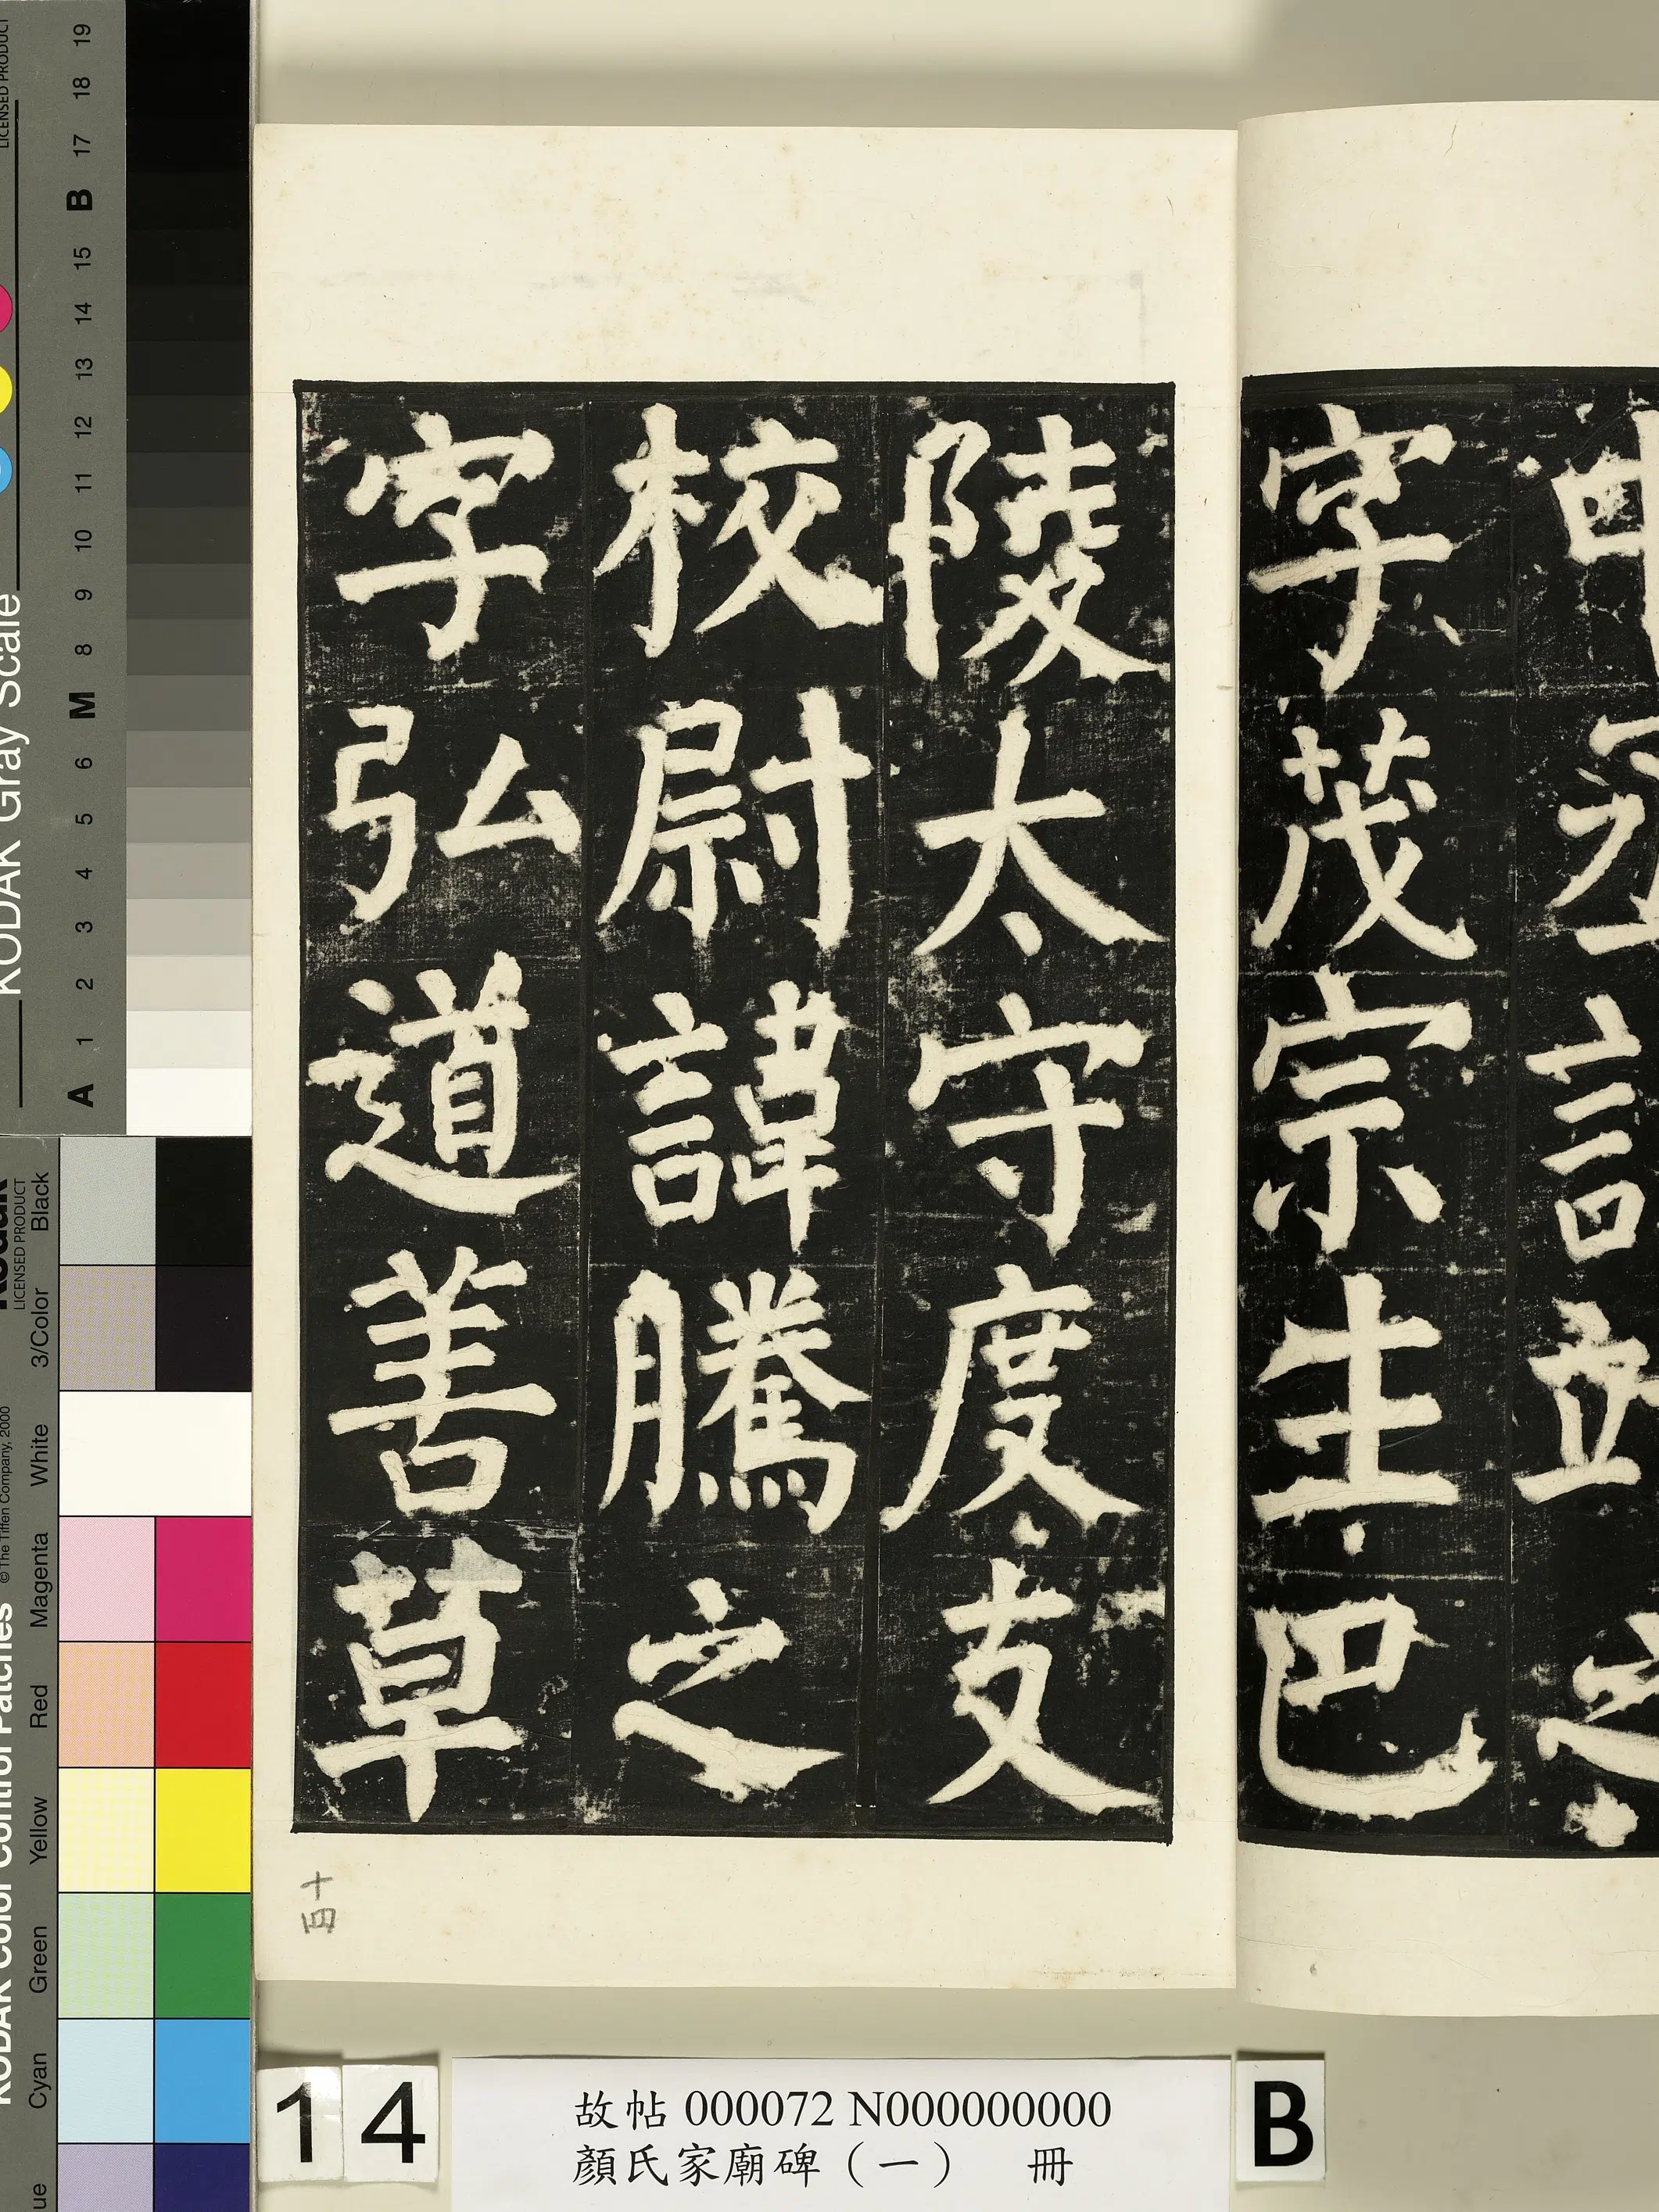 字茂宗生巴
陵太守度支
校尉諱騰之
字弘道善草
十四
14
故帖 000072 N000000000
顏氏家廟碑（一） 冊
B
KODAK Gray Scale
LICENSED PRODUCT
A 1 2 3 4 5 6 M 8 9 10 11 12 13 14 15 B 17 18 19
KODAK Color Control Patches
© The Tiffen Company, 2000
Kodak
LICENSED PRODUCT
Cyan Green Yellow Red Magenta White 3/Color Black